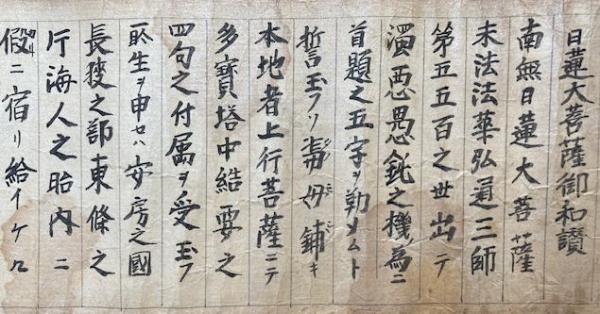 日蓮大菩薩御和讃
南無日蓮大菩薩
末法法華弘通三師
第五五百之世出テ
濁悪愚鈍之機ノ為ニ
首題之五字ヲ勤メムト
誓玉フソ母鋪キ
本地者上行菩薩ニテ
多寶塔中結要之
四句之付属ヲ受玉フ
所生ヲ申セハ安房之國
長狹之郡東條之
片海人之胎内ニ
假ニ宿リ給イケル